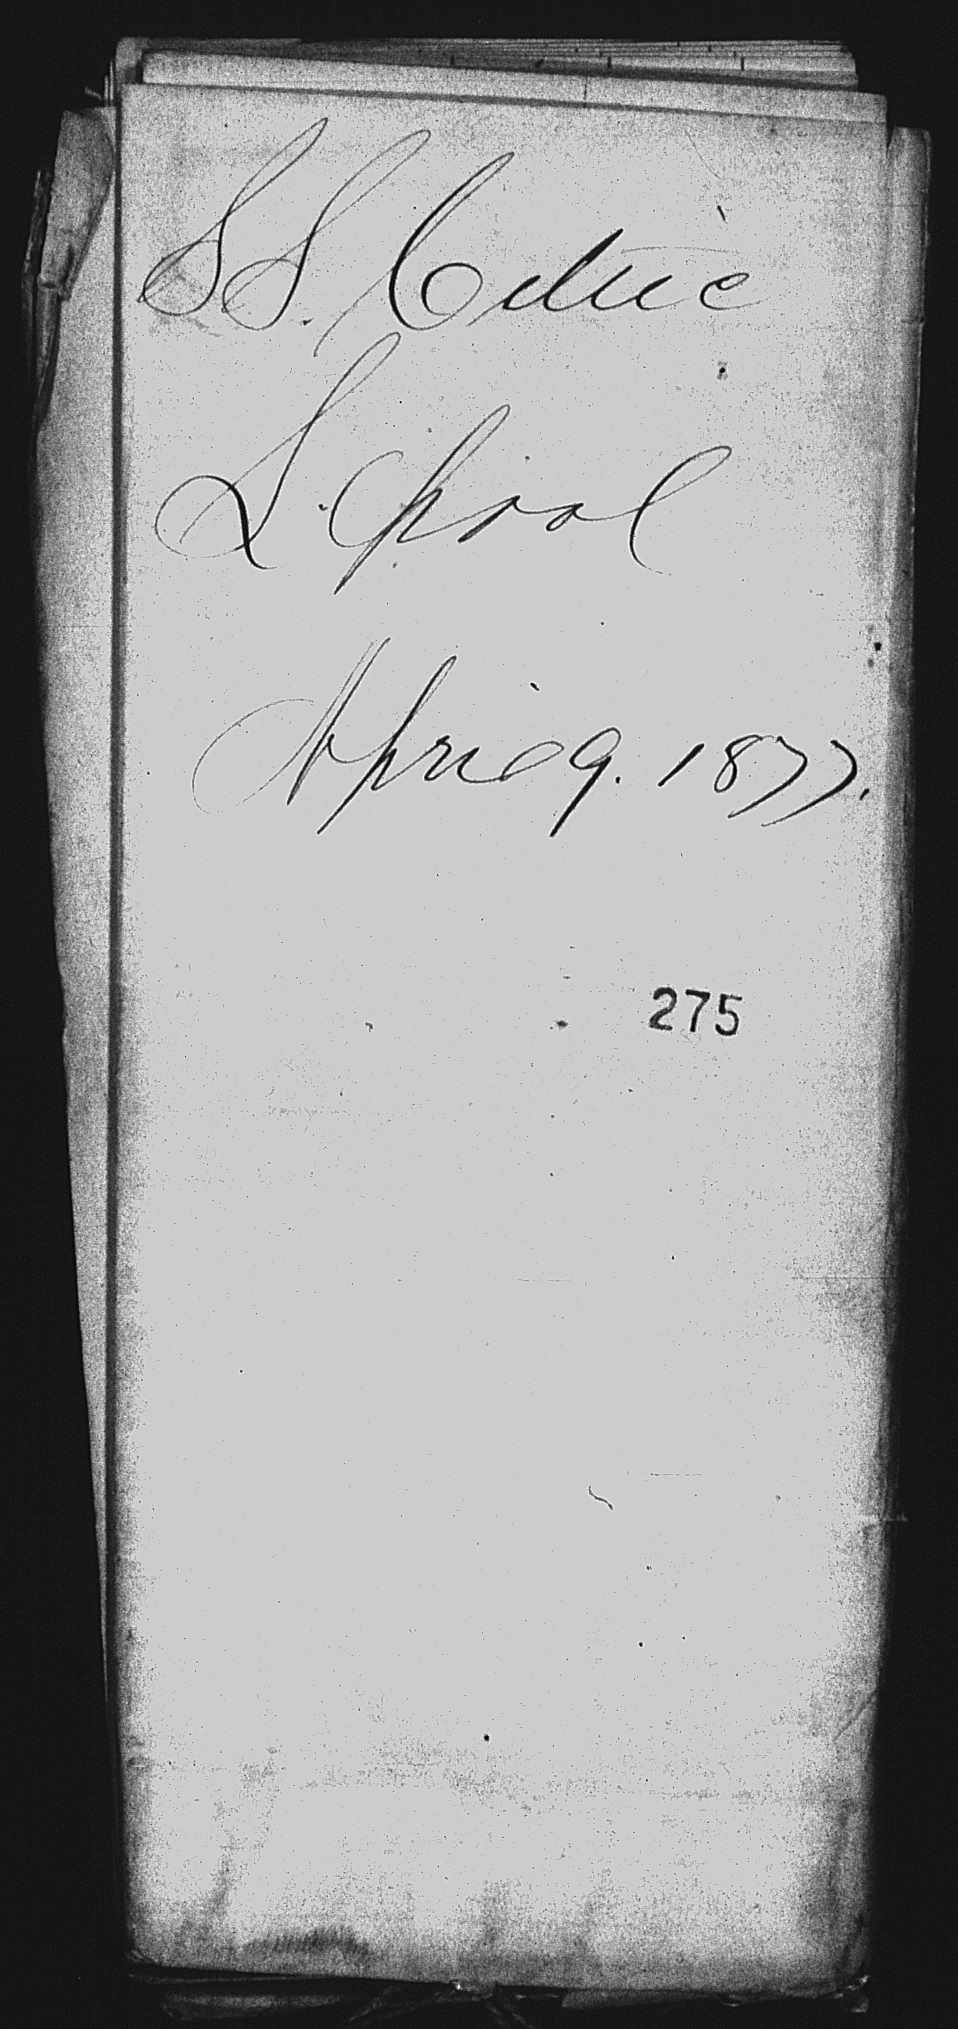 SS. Celtic
L. Pool
April 9. 1877.
275